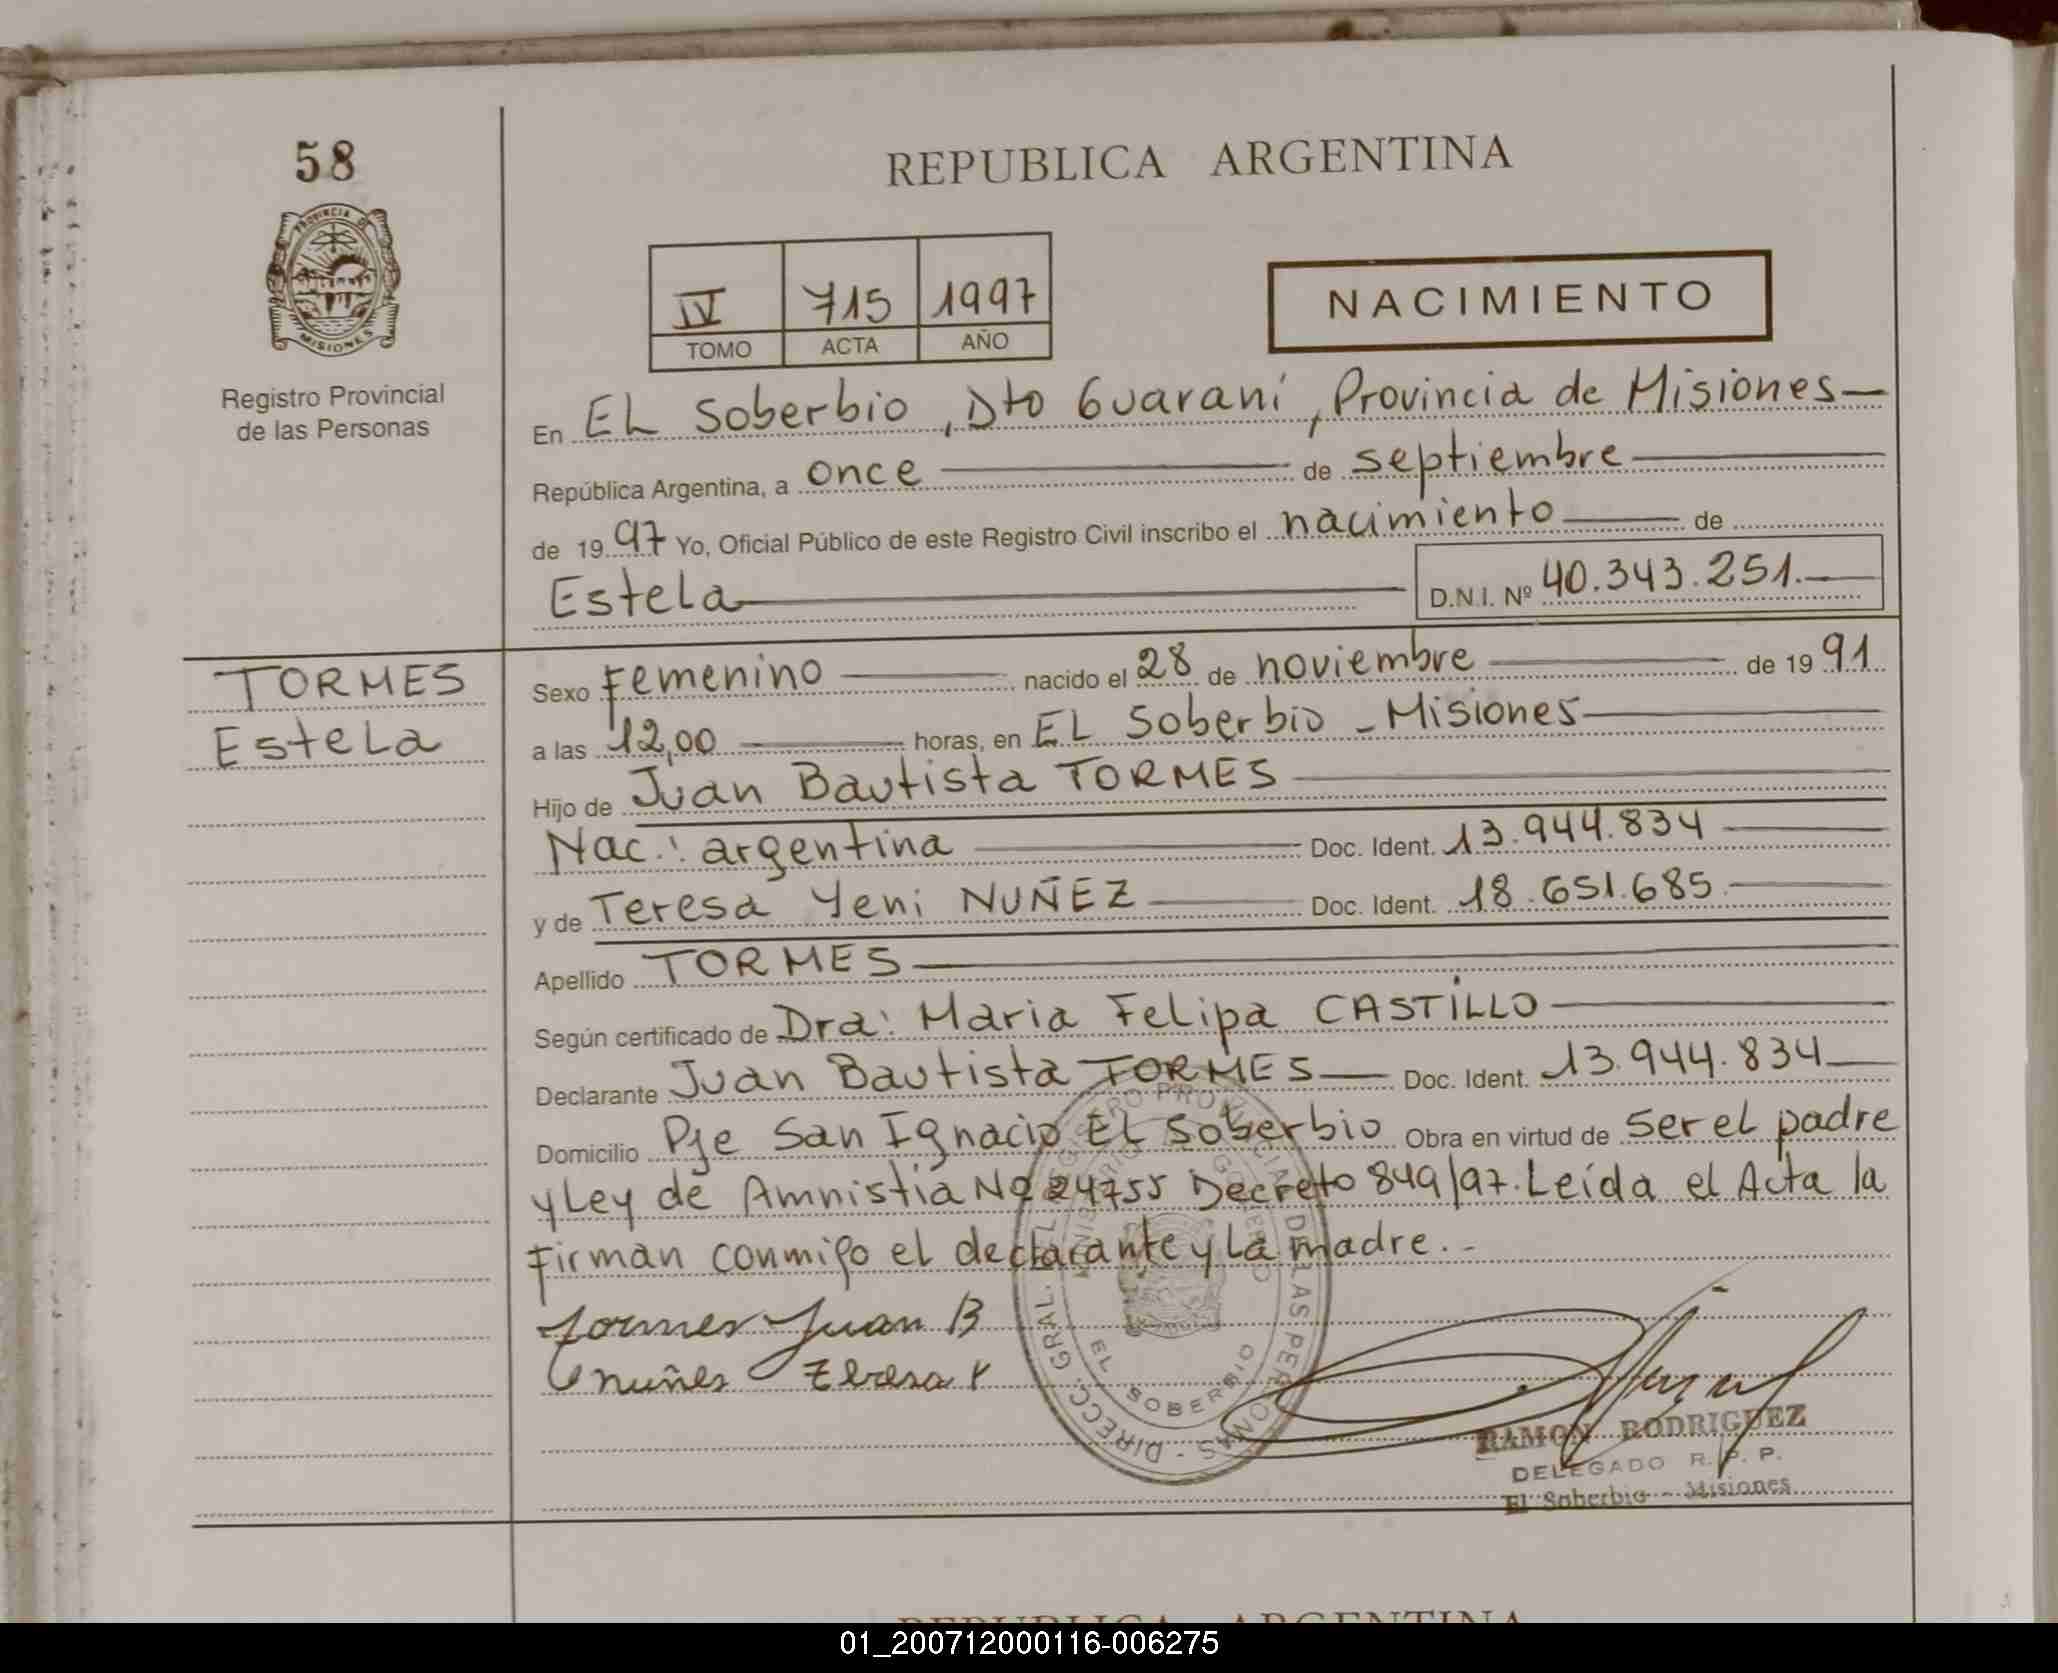 58
REPUBLICA ARGENTINA
PROVINCIA DE
MISIONES
IV 715 1997
TOMO ACTA AÑO
NACIMIENTO
Registro Provincial
de las Personas
En EL Soberbio, Dto Guaraní, Provincia de Misiones
República Argentina, a once de septiembre
de 1997 Yo, Oficial Público de este Registro Civil inscribo el nacimiento de
Estela D.N.I. Nº 40.343.251.
TORMES
Estela
Sexo Femenino nacido el 28 de noviembre de 1991
a las 12,00 horas, en EL Soberbio - Misiones
Hijo de Juan Bautista TORMES
Nac.: argentina Doc. Ident. 13.944.834
y de Teresa Yeni NUÑEZ Doc. Ident. 18.651.685
Apellido TORMES
Según certificado de Dra: Maria Felipa CASTILLO
Declarante Juan Bautista TORMES Doc. Ident. 13.944.834
Domicilio Pje San Ignacio EL Soberbio Obra en virtud de ser el padre
y Ley de Amnistia Nº 24755 Decreto 849/97. Leída el Acta la
firman conmigo el declarante y La madre.-
Tormes Juan B
nuñes teresa Y
DIRECC. GRAL. DEL REGISTRO PROVINCIAL DE LAS PERSONAS -
MINISTERIO GOBIERNO
EL SOBERBIO
RAMON RODRIGUEZ
DELEGADO R. P. P.
El Soberbio - Misiones
REPUBLICA ARGENTINA
01_200712000116-006275